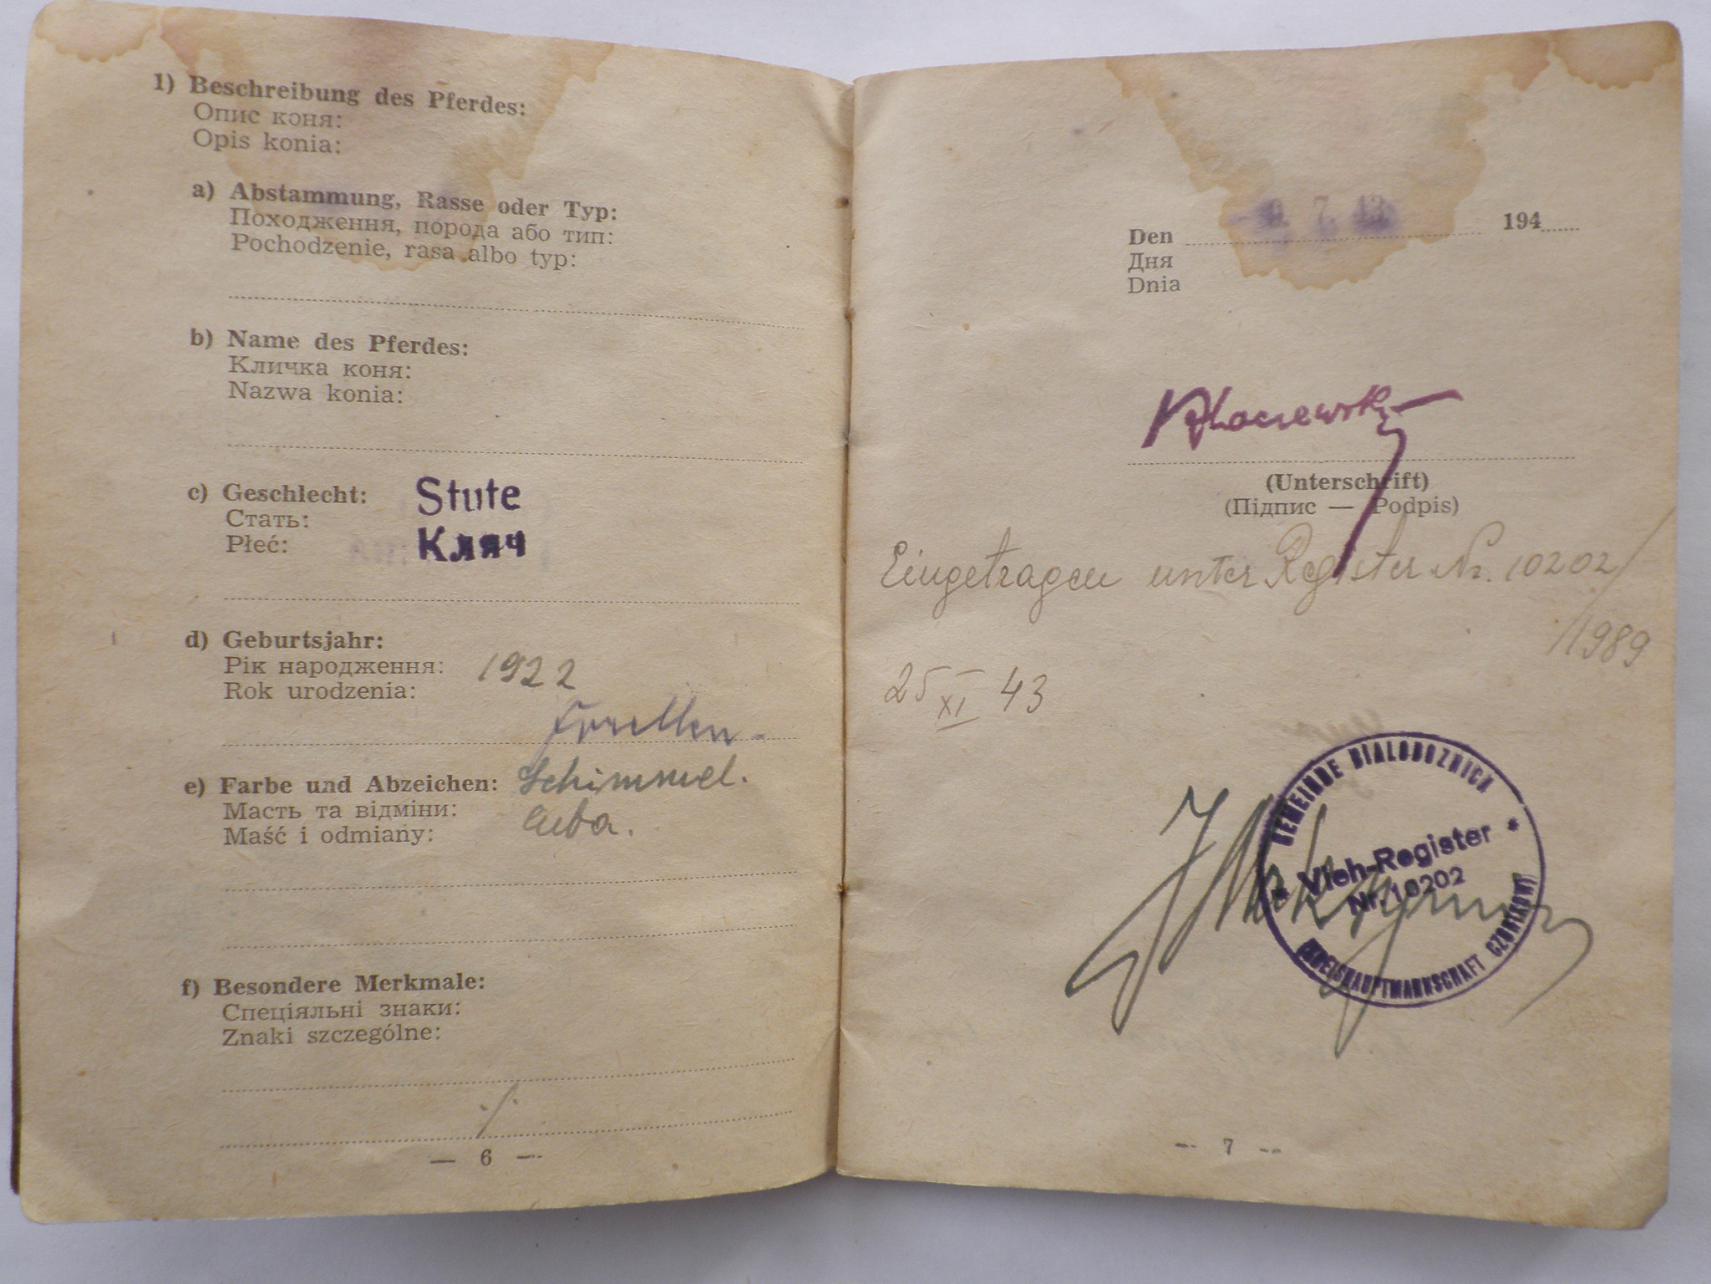 1) Beschreibung des Pferdes:
Опис коня:
Opis konia:
a) Abstammung, Rasse oder Typ:
Походження, порода або тип:
Pochodzenie, rasa albo typ:
b) Name des Pferdes:
Кличка коня:
Nazwa konia:
c) Geschlecht: Stute
Стать:
Płeć: Кляч
d) Geburtsjahr:
Рік народження: 1922
Rok urodzenia:
Forellen-
e) Farbe und Abzeichen: Schimmel.
Масть та відміни:
Maść i odmiany:
f) Besondere Merkmale:
Спеціяльні знаки:
Znaki szczególne:
./.
— 6 —
7. 43
Den 194
Дня
Dnia
(Unterschrift)
(Підпис — Podpis)
Eingetragen unter Register Nr. 10202/
/1989
25 XI 43
GEMEINDE BIALOBOZNICA
Vieh-Register
Nr. 10202
KREISHAUPTMANNSCHAFT CZORTKOW
— 7 —